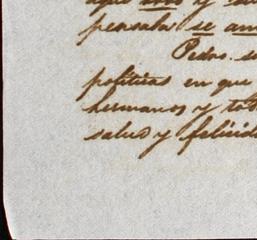 pensaba se am
Pedro. s
politicas en que
hermanos y tod
salud y felicid